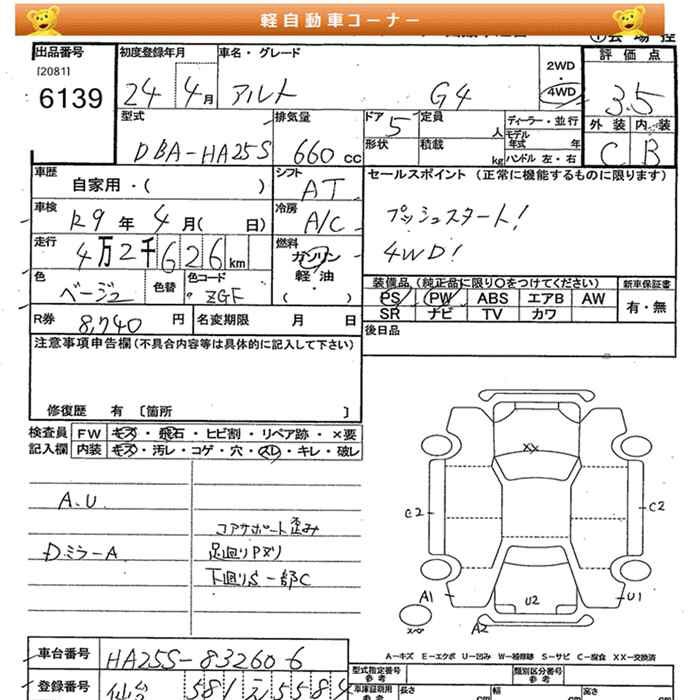 軽自動車コーナー
出品番号
[2081]
6139
初度登録年月
24 4月
車名・グレード
アルト G4
2WD
・
4WD
評価点
3.5
外装 内装
C B
型式
DBA-HA25S
排気量
660 cc
ドア
5
定員
人
ディーラー・並行
モデル年式 年
形状
積載
kg
ハンドル 左・右
車歴
自家用・( )
シフト
AT
セールスポイント (正常に機能するものに限ります)
プッシュスタート!
4WD!
車検
R9 年 4 月( 日)
冷房
A/C
走行
4万2千626km
燃料
ガソリン
軽・油
( )
色
ベージュ
色替
色コード
ZGF
装備品 (純正品に限り○をつけてください)
新車保証書
PS PW ABS エアB AW
有・無
SR ナビ TV カワ
R券 8,740 円
名変期限 月 日
後日品
注意事項申告欄(不具合内容等は具体的に記入して下さい)
修復歴 有 〔箇所 〕
検査員
記入欄
FW キズ・飛石・ヒビ割・リペア跡・×要
内装 キズ・汚レ・コゲ・穴・スレ・キレ・破レ
A.U
Dミラ-A
コアサポート歪み
足廻りPヌリ
下廻りS一部C
XX
C2
C2
A1
U2
U1
A2
A-キズ E-エクボ U-凹み W-補修跡 S-サビ C-腐食 XX-交換済
車台番号
HA25S-832606
登録番号
仙台 581 え 5584
型式指定番号
参考
類別区分番号
参考
長さ
cm
幅
cm
高さ
cm